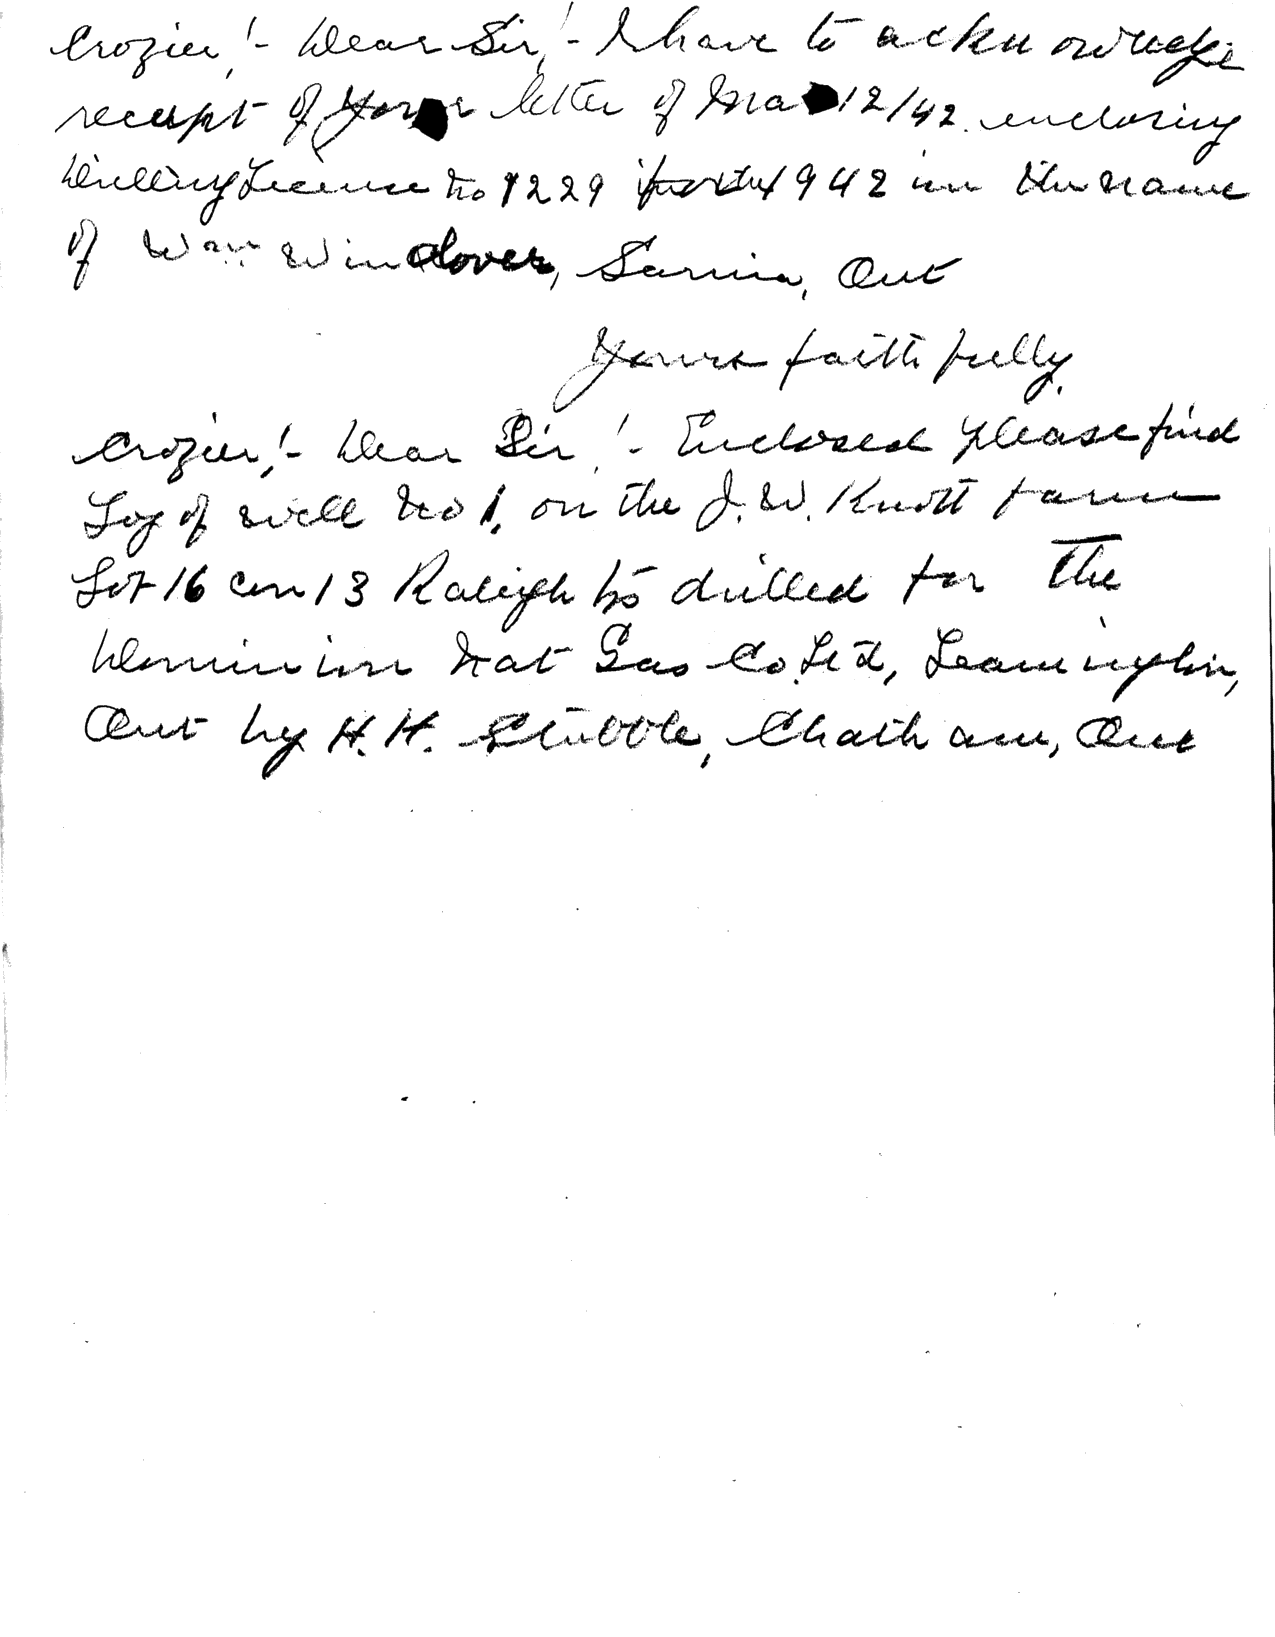 Crozier!- Dear Sir!- I have to acknowledge
receipt of your letter of Mar 12/42 enclosing
Drilling License No 1229 for 1942 in the name
of Wm Windover, Sarnia, Ont
Yours faithfully,
Crozier!- Dear Sir!- Enclosed please find
Log of well No 1, on the J. W. Knott farm
Lot 16 con 13 Raleigh Tp drilled for The
Dominion Nat Gas Co Ltd, Leamington,
Ont by H. H. Stubble, Chatham, Ont